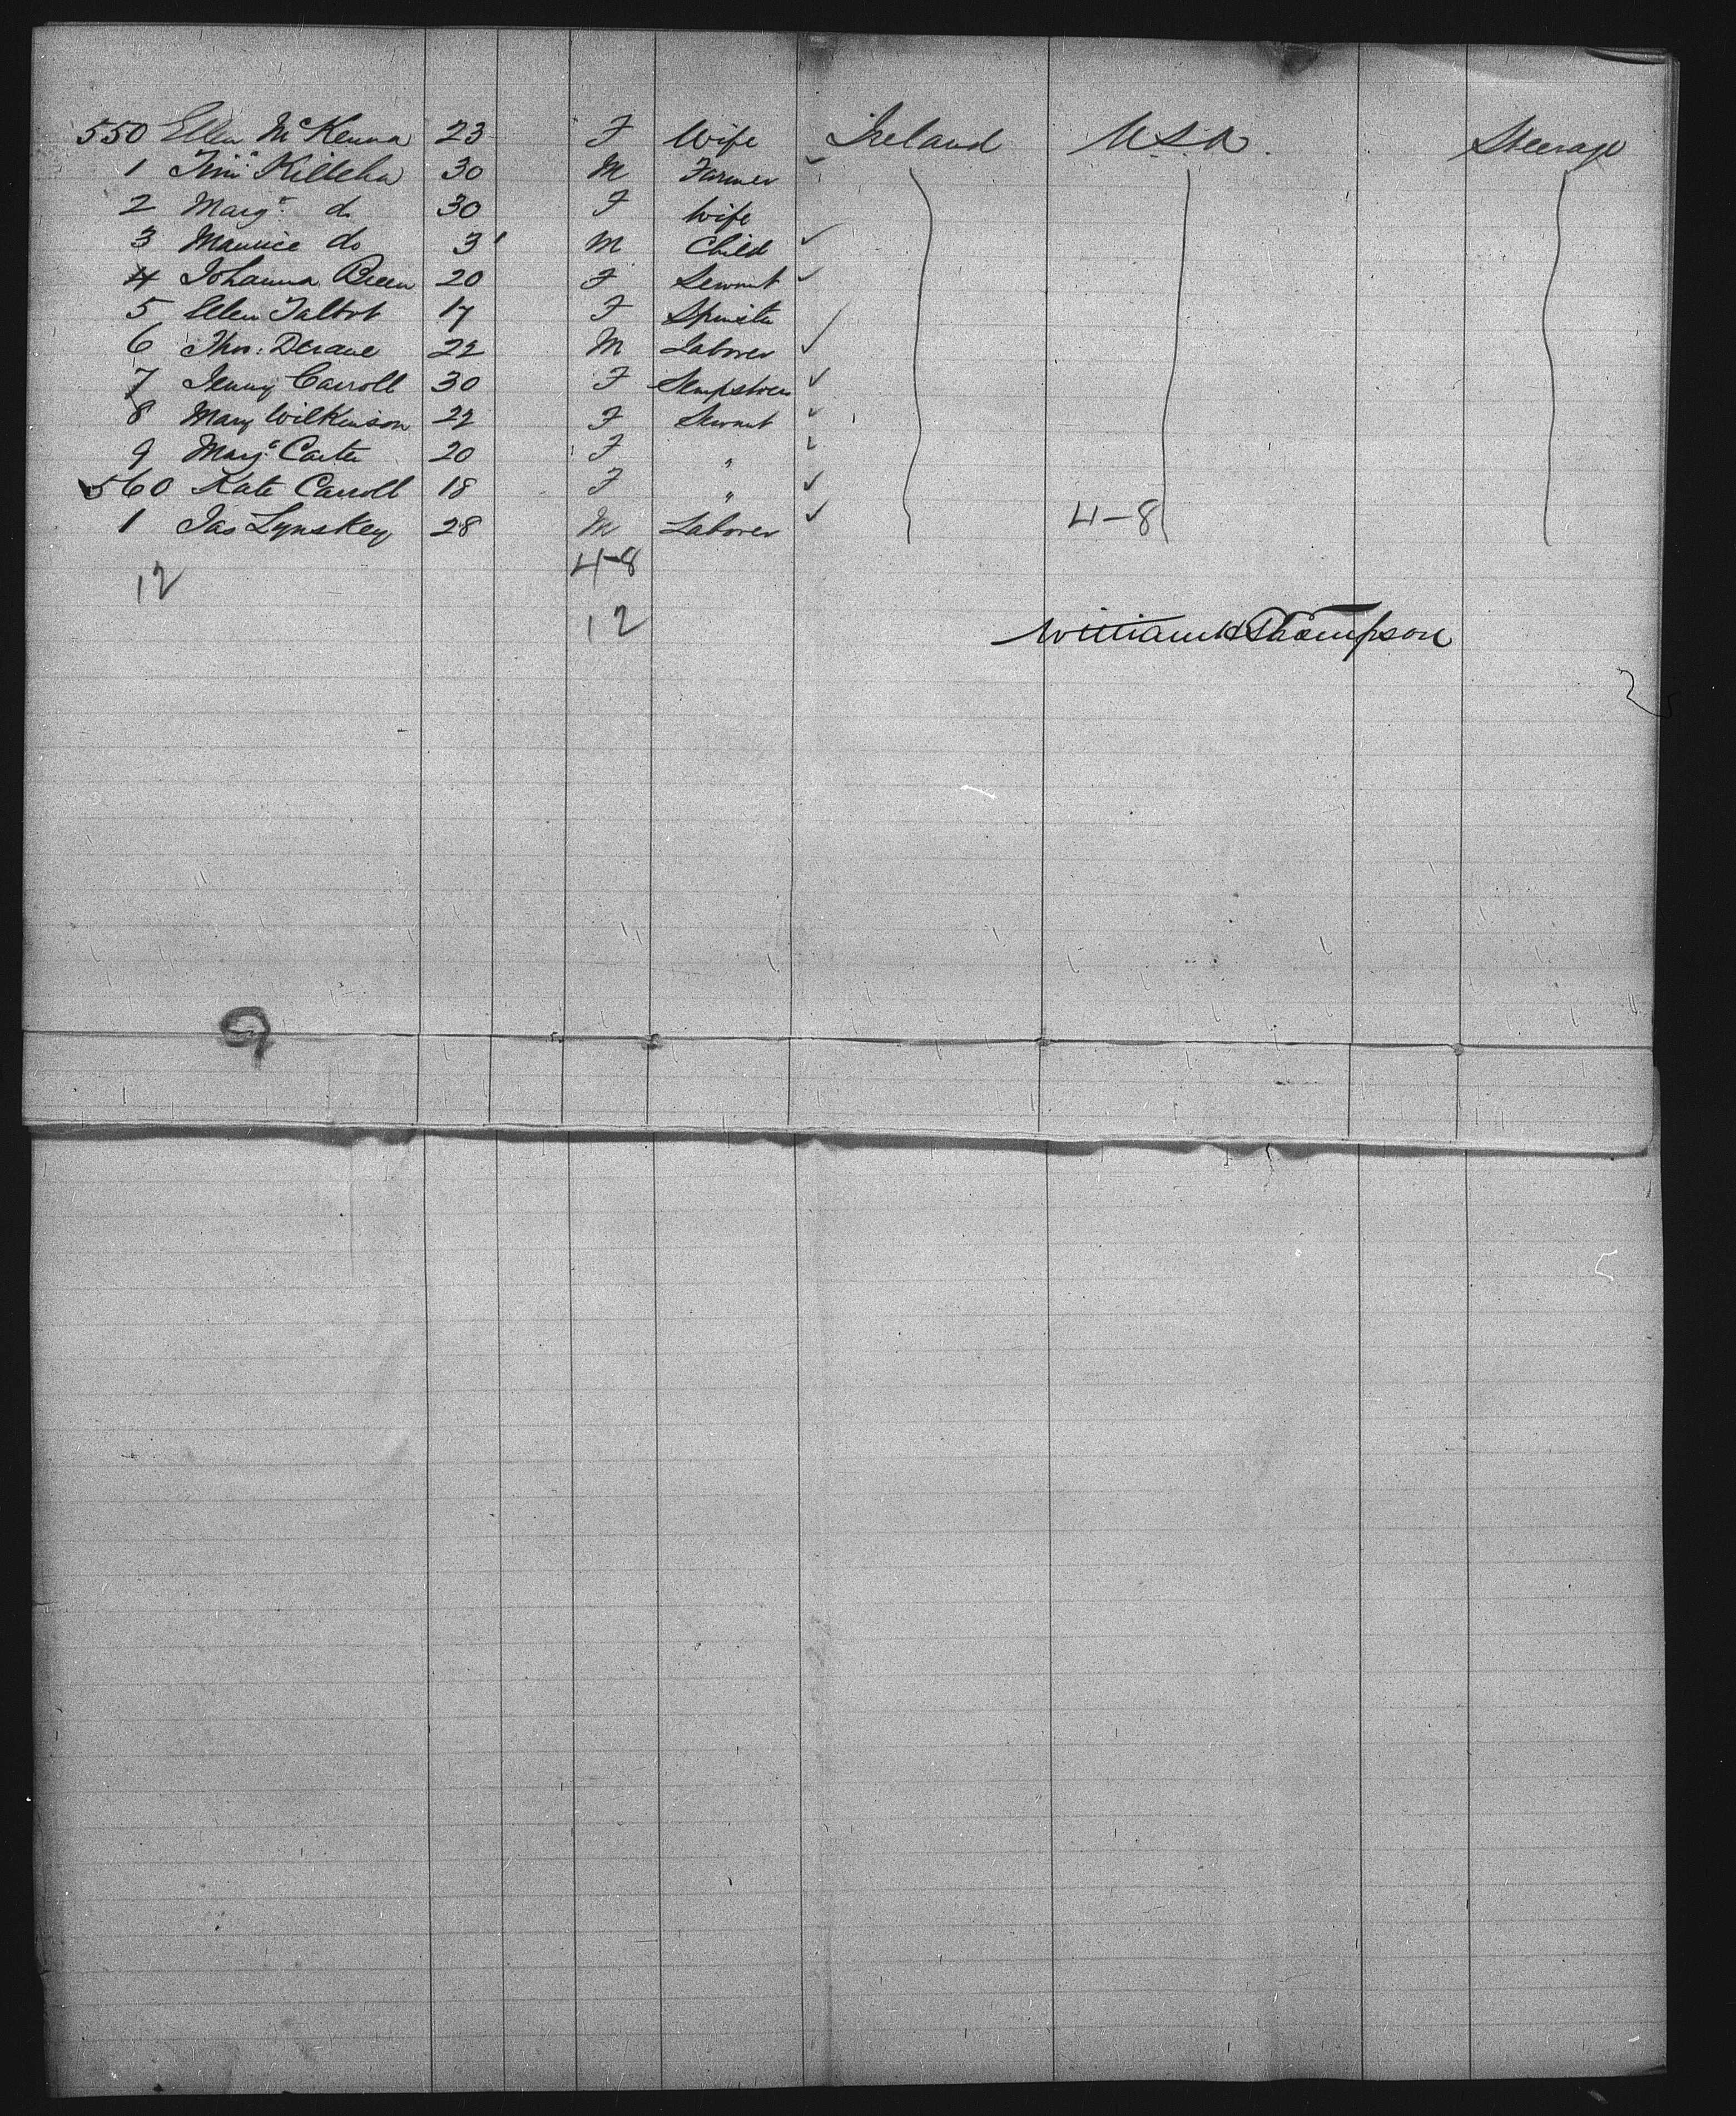 550 Ellen McKenna 23 F Wife Ireland U.S.A. Steerage
1 Killeha 30 M Farmer
2 Margt. do 30 F Wife
3 Maurice do 3 M Child
4 Johanna Breen 20 F Servant
5 Ellen Talbot 17 F Spinster
6 Thos: 22 M Laborer
7 Jenny Carroll 30 F Sempstress
8 Mary Wilkinson 22 F Servant
9 Margt. Carter 20 F "
560 Kate Carroll 18 F "
1 Jas Lynskey 28 M Laborer 4-8
12 4-8
12
William H Thompson
9